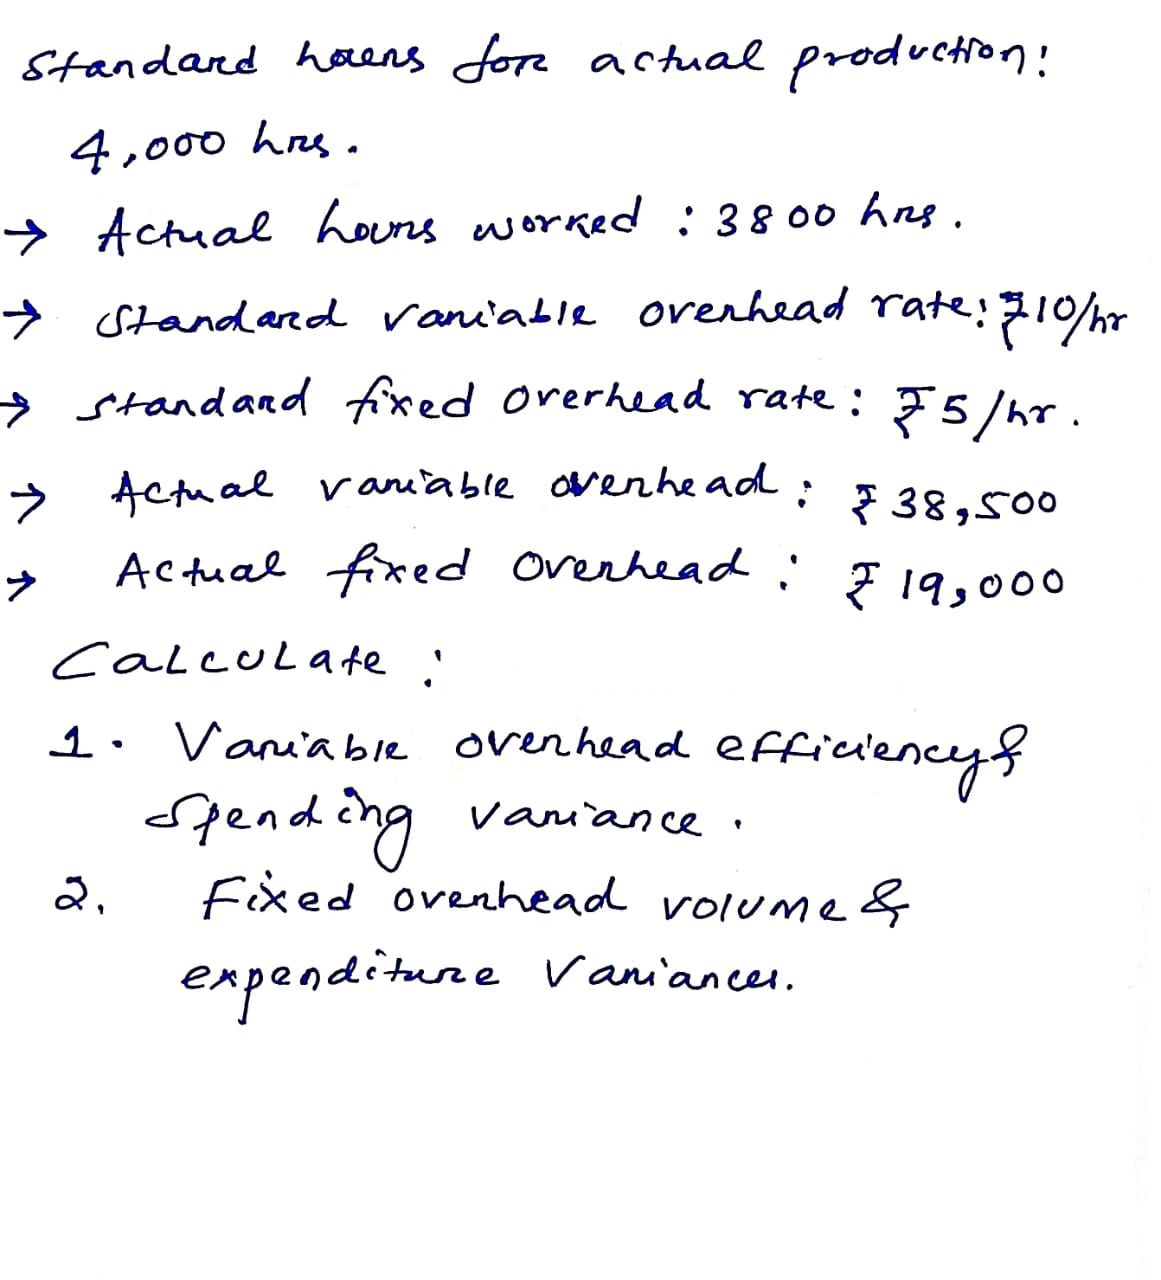 Standard hours for actual production:
4,000 hrs.
→ Actual hours worked : 3800 hrs.
→ Standard variable overhead rate: ₹10/hr
→ Standard fixed overhead rate: ₹5/hr.
→ Actual variable overhead: ₹38,500
→ Actual fixed overhead: ₹19,000
Calculate:
1. Variable overhead efficiency &
Spending variance.
2. Fixed overhead volume &
expenditure Variances.